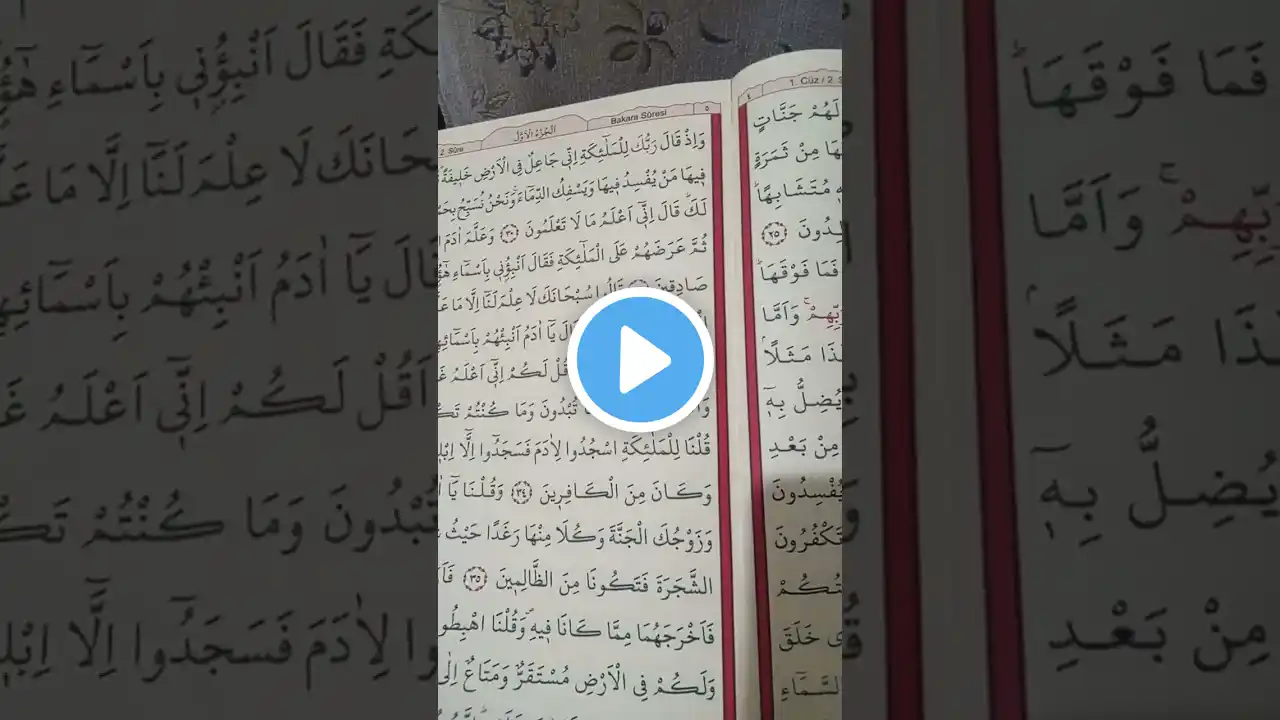 ٥
Bakara Sûresi
اَلْجُزْءُ الْاَوَّلُ
2. Sûre
وَاِذْ قَالَ رَبُّكَ لِلْمَلٰٓئِكَةِ اِنّ۪ي جَاعِلٌ فِي الْاَرْضِ خَل۪يفَةًۜ
ف۪يهَا مَنْ يُفْسِدُ ف۪يهَا وَيَسْفِكُ الدِّمَٓاءَۚ وَنَحْنُ نُسَبِّحُ
لَكَۜ قَالَ اِنّ۪ٓي اَعْلَمُ مَا لَا تَعْلَمُونَ ﴿٣٠﴾ وَعَلَّمَ اٰدَمَ
ثُمَّ عَرَضَهُمْ عَلَى الْمَلٰٓئِكَةِ فَقَالَ اَنْبِؤُ۫ن۪ي بِاَسْمَٓاءِ
صَادِق۪ينَ قَالُوا سُبْحَانَكَ لَا عِلْمَ لَنَٓا اِلَّا مَا
يَٓا اٰدَمُ اَنْبِئْهُمْ
لَكُمْ اِنّ۪ٓي اَعْلَمُ
تُبْدُونَ وَمَا كُنْتُمْ
قُلْنَا لِلْمَلٰٓئِكَةِ اسْجُدُوا لِاٰدَمَ فَسَجَدُٓوا اِلَّٓا
وَكَانَ مِنَ الْكَافِر۪ينَ ﴿٣٤﴾ وَقُلْنَا يَٓا
وَزَوْجُكَ الْجَنَّةَ وَكُلَا مِنْهَا رَغَدًا حَيْثُ
الشَّجَرَةَ فَتَكُونَا مِنَ الظَّالِم۪ينَ ﴿٣٥﴾
فَاَخْرَجَهُمَا مِمَّا كَانَا ف۪يهِۖ وَقُلْنَا
وَلَكُمْ فِي الْاَرْضِ مُسْتَقَرٌّ وَمَتَاعٌ اِلٰى
٤
1. Cüz / 2.
لَهُمْ جَنَّاتٍ
مِنْ ثَمَرَةٍ
مُتَشَابِهًاۜ
﴿٢٥﴾
فَمَا فَوْقَهَاۜ
وَاَمَّا
مَثَلًاۢ
يُضِلُّ بِه۪ٓ
مِنْ بَعْدِ
تَكْفُرُونَ
خَلَقَ
السَّمَٓاءِ